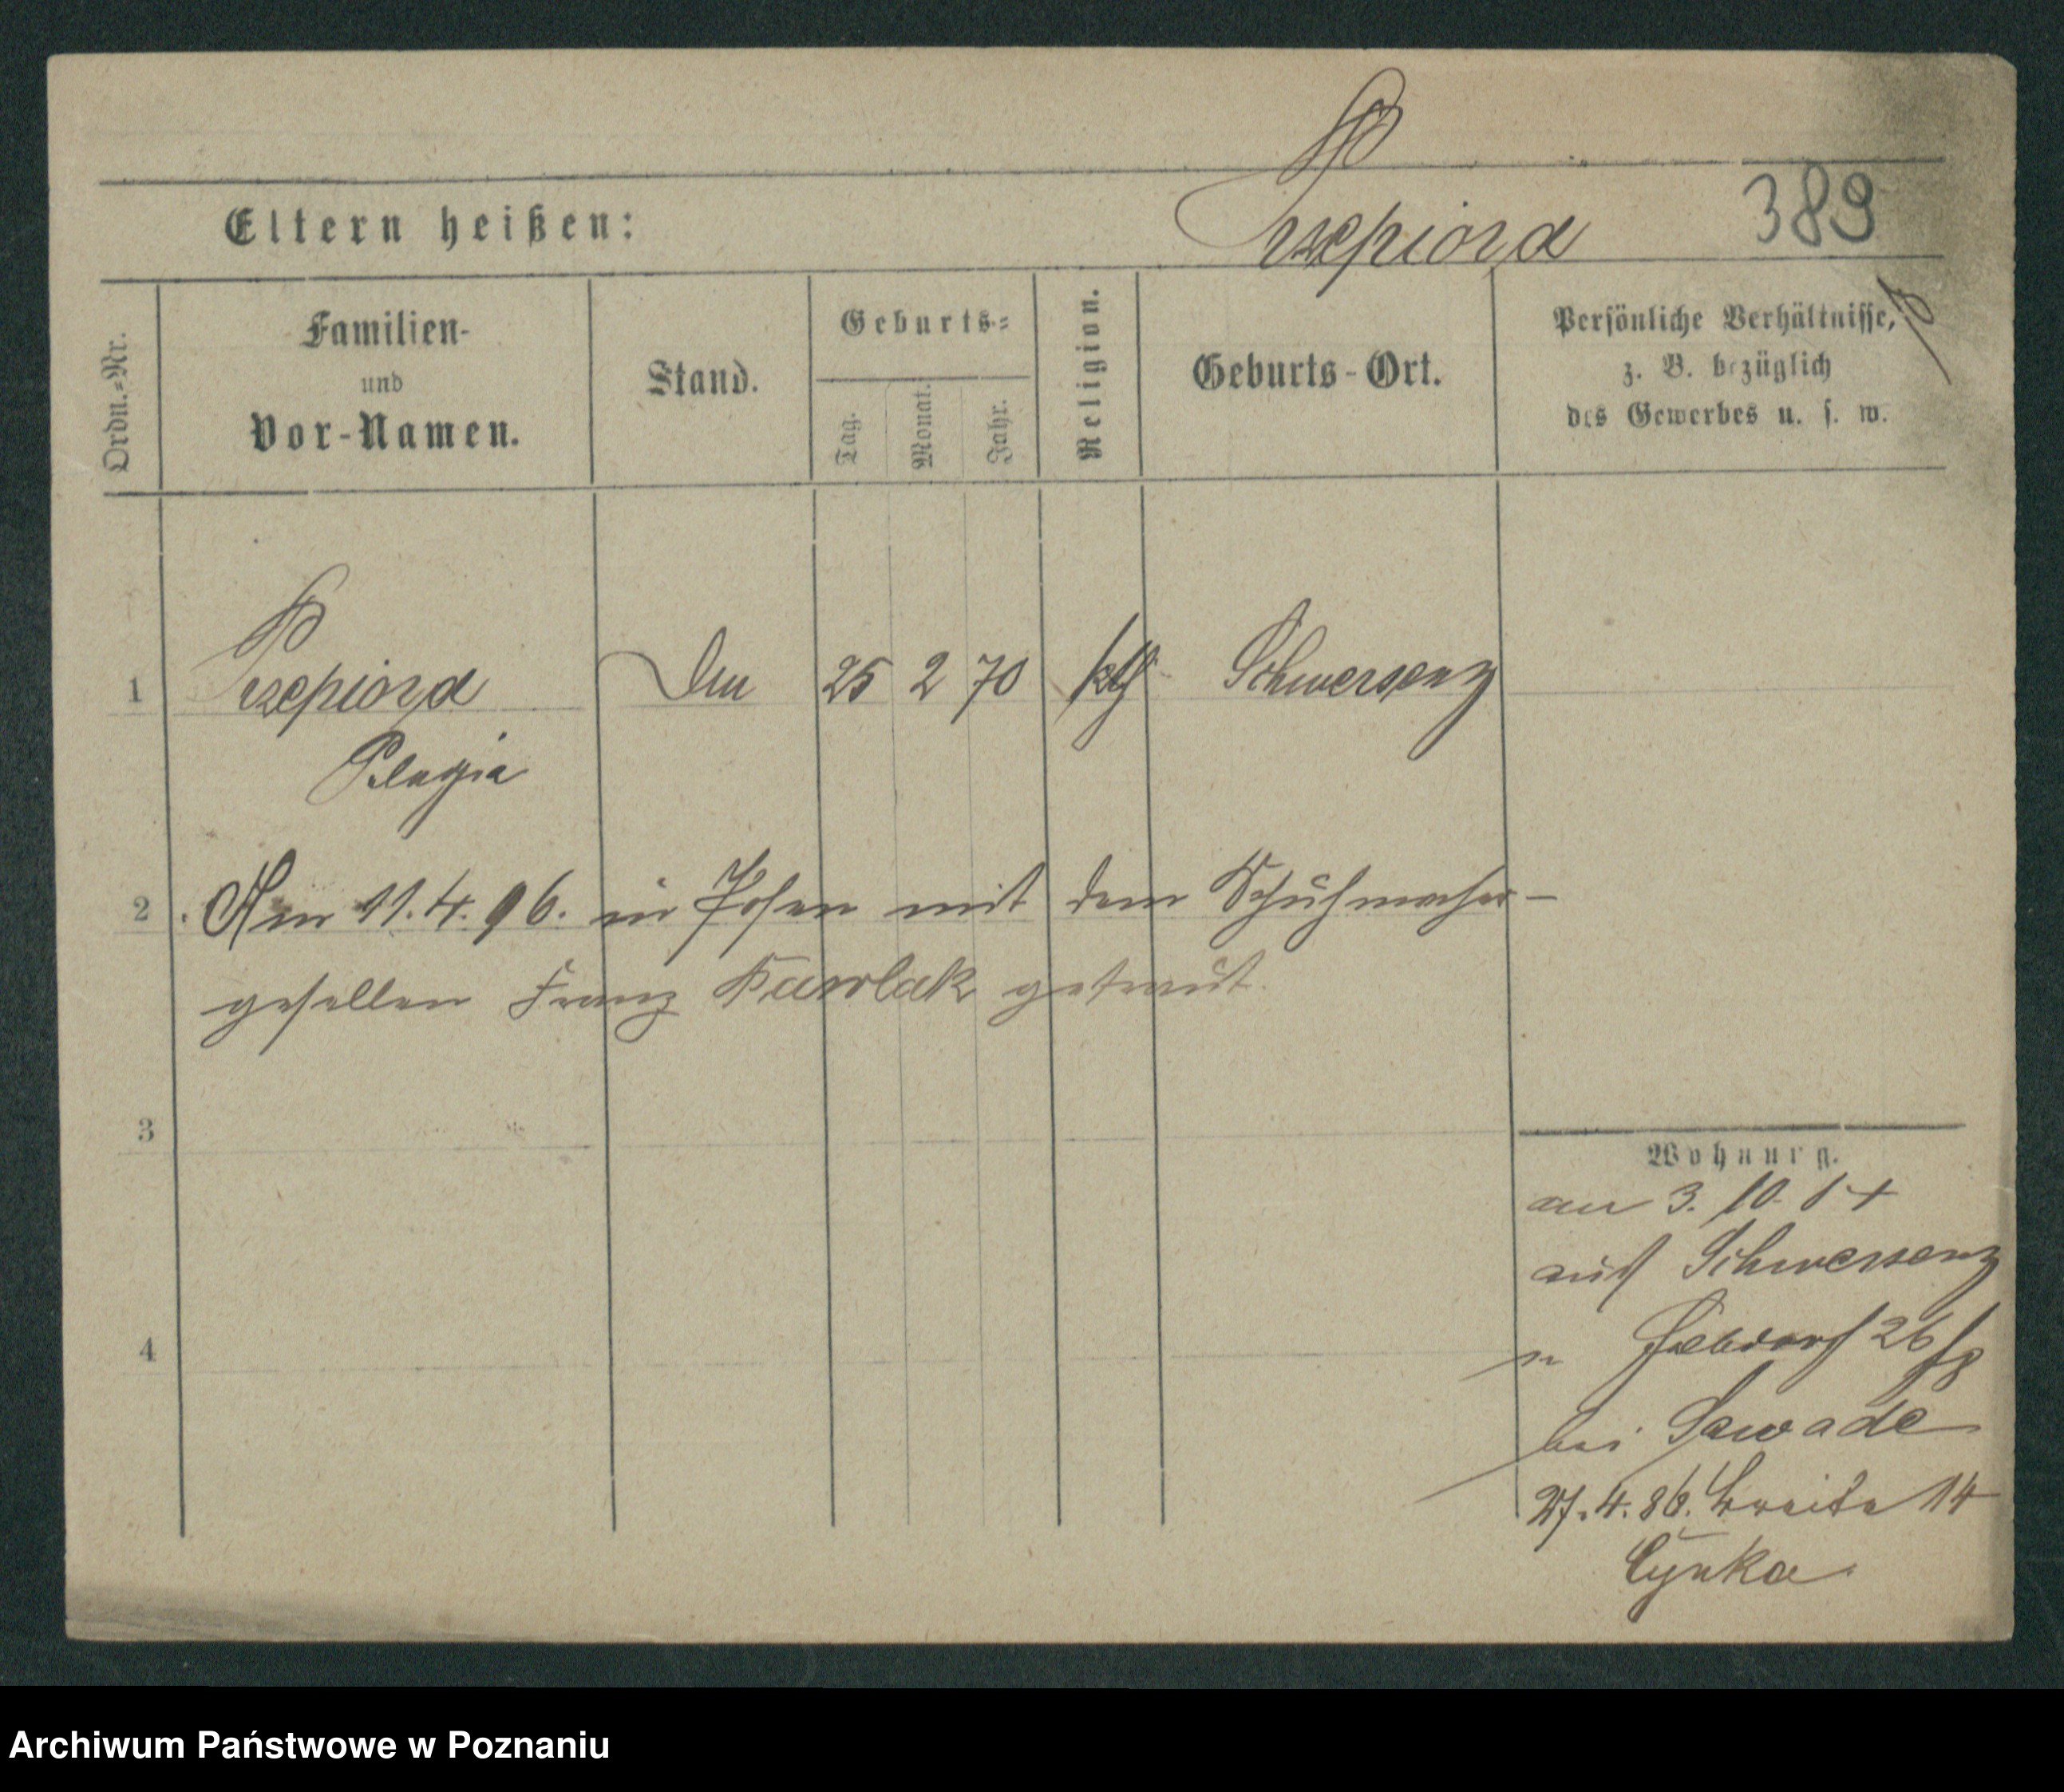 Eltern heißen:
Przepiora
389
Ordn.-Nr.
Familien-
und
Vor-Namen.
Stand.
Geburts-
Tag.
Monat.
Jahr.
Religion.
Geburts-Ort.
Persönliche Verhältnisse,
z. B. bezüglich
des Gewerbes u. s. w.
1
Przepiora
25 2 70 kth Schwersenz
Pelagia
2
Am 11. 4. 96. in Posen mit dem Schuhmacher-
gesellen Franz Kawlak getraut.
3
Wohnung.
am 3. 10. 84
aus Schwersenz
4
26/8
bei Sawade
27. 4. 86. Breite 14
Cynka
Archiwum Państwowe w Poznaniu